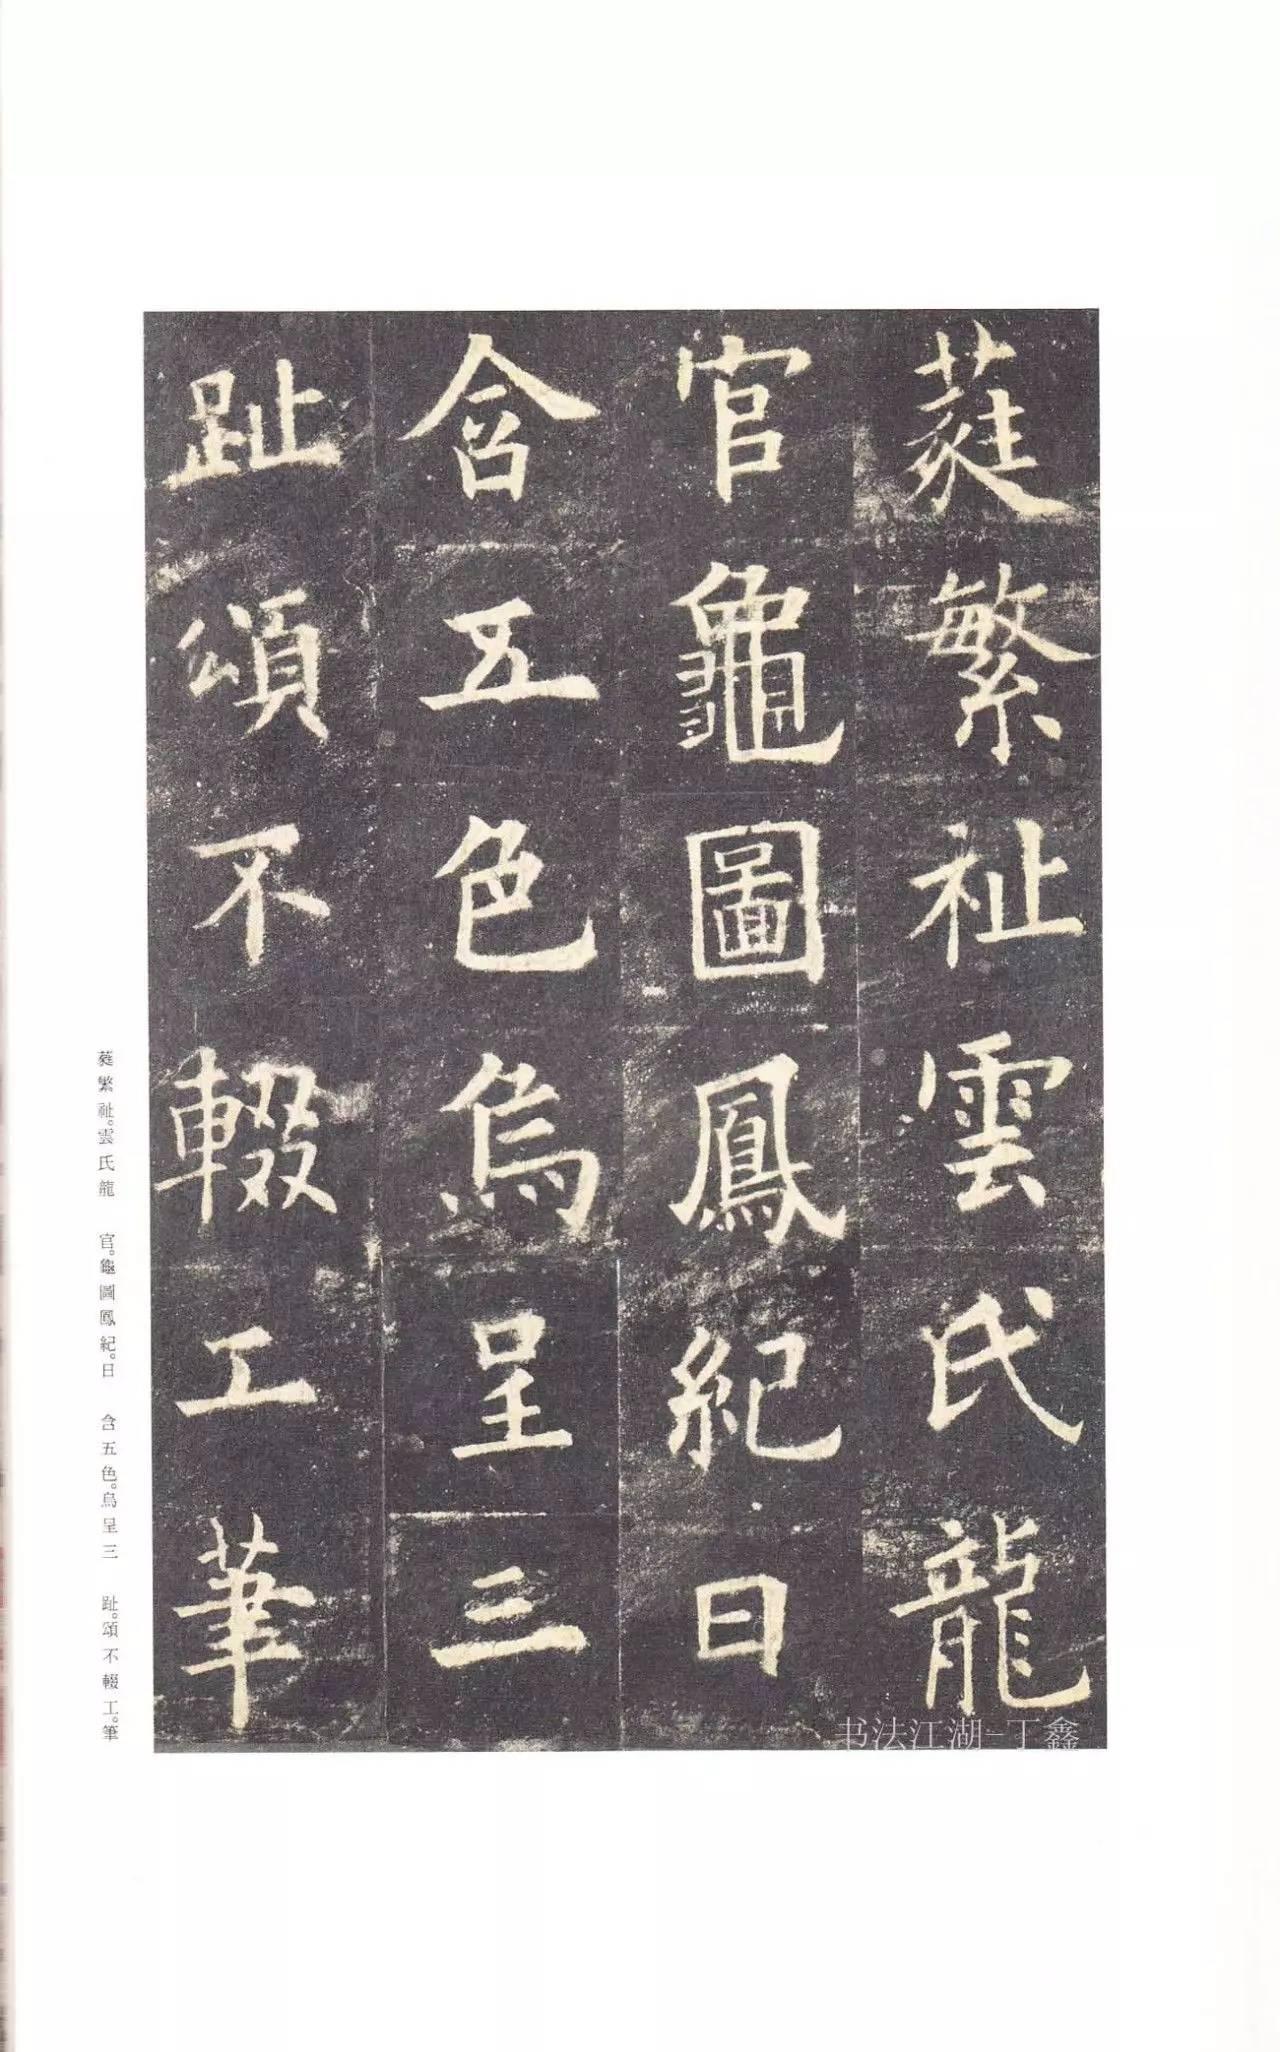 蕤繁祉雲氏龍
官龜圖鳳紀日
含五色烏呈三
趾頌不輟工筆
蕤繁祉。雲氏龍　官。龜圖鳳紀。日　含五色。烏呈三　趾。頌不輟工。筆
书法江湖-丁鑫